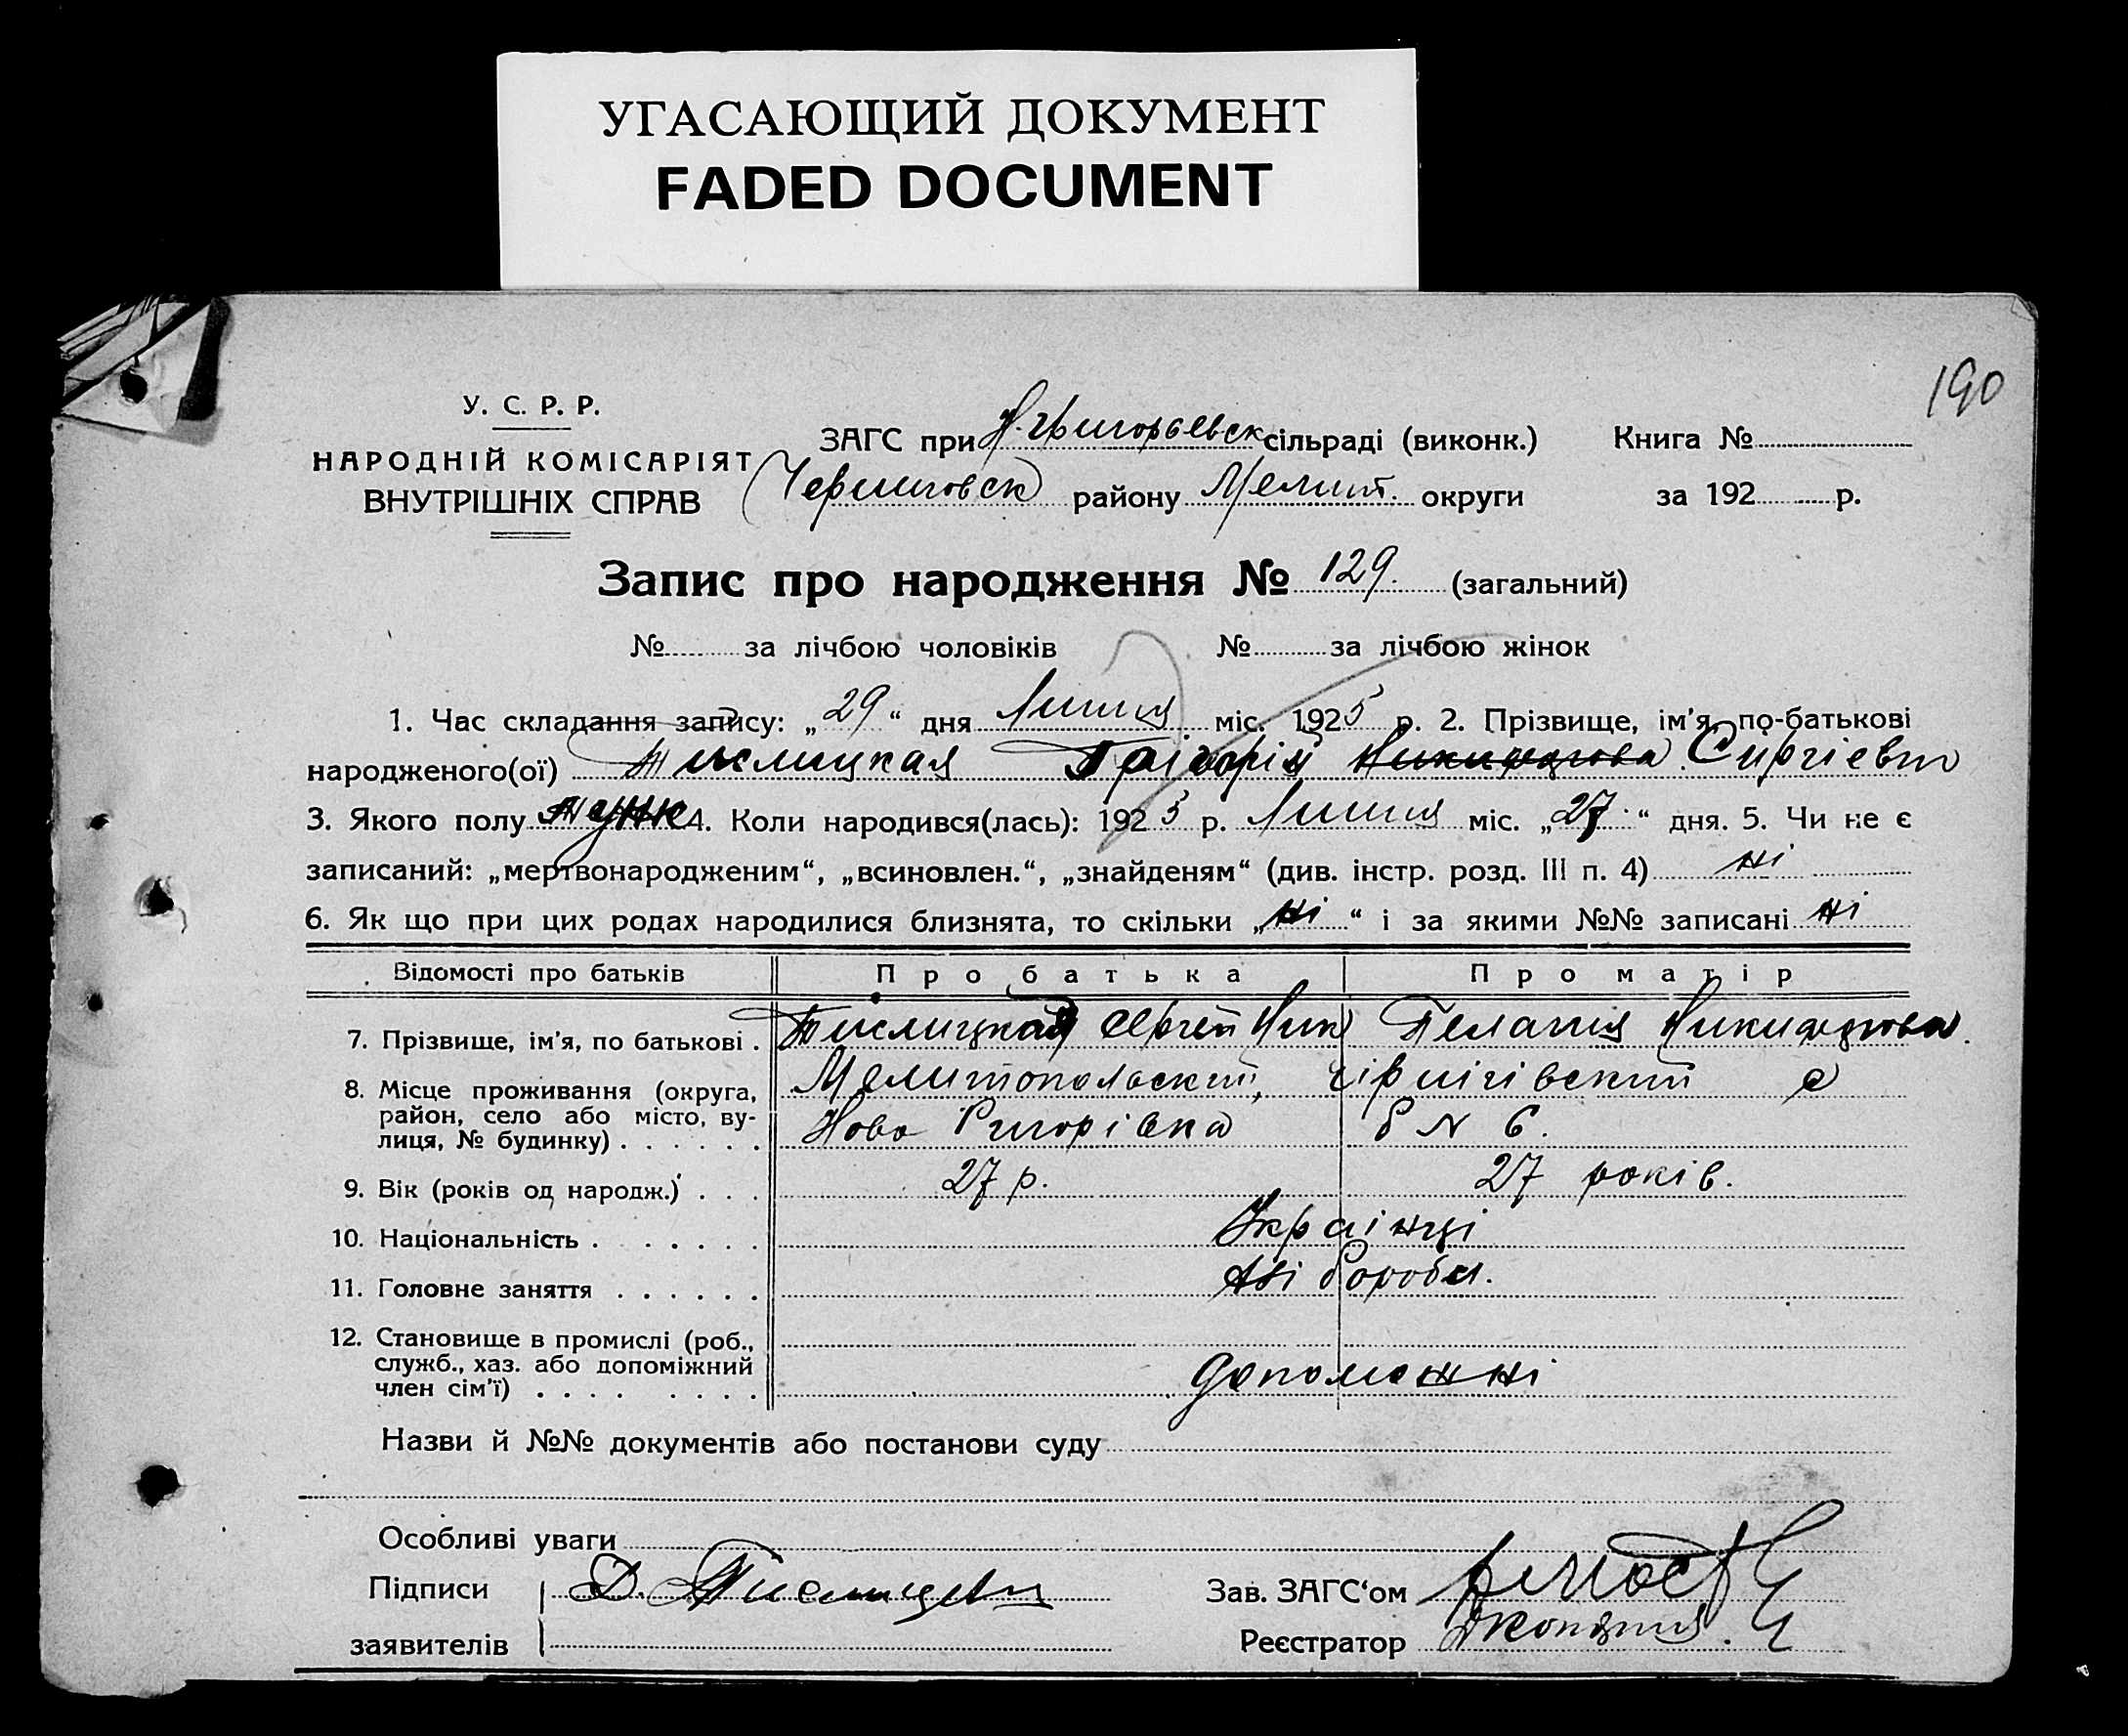 УГАСАЮЩИЙ ДОКУМЕНТ
FADED DOCUMENT
190
У. С. Р. Р.
НАРОДНІЙ КОМІСАРІЯТ
ВНУТРІШНІХ СПРАВ
ЗАГС при Н. Григорьевск сільраді (виконк.) Книга №
Черниговск району Мелит. округи за 192 р.
Запис про народження № 129. (загальний)
№ за лічбою чоловіків № за лічбою жінок
1. Час складання запису: „29“ дня Липня міс. 1925 р. 2. Прізвище, ім'я, по-батькові
народженого(ої) Тислицкая Григорій Никифорова Сиргіевт
3. Якого полу 4. Коли народився(лась): 1925 р. Липня міс. „27“ дня. 5. Чи не є
записаний: „мертвонародженим“, „всиновлен.“, „знайденям“ (див. інстр. розд. III п. 4) ні
6. Як що при цих родах народилися близнята, то скільки „ні“ і за якими №№ записані ні
Відомості про батьків Про батька Про матір
7. Прізвище, ім'я, по батькові . Тислицкая Сергей Ник Пелагия Никифорова.
8. Місце проживання (округа, район, село або місто, вулиця, № будинку) . . . . . . Мелитопольский, чірнігівский с
Ново Григорівка б N 6.
9. Вік (років од народж.) . . . 27 р. 27 років.
10. Національність . . . . . . . Українці
11. Головне заняття . . . . . . Хліборобы.
12. Становище в промислі (роб., служб., хаз. або допоміжний член сім'ї) . . . . . . . . Допоможні
Назви й №№ документів або постанови суду
Особливі уваги
Підписи Д.
заявителів
Зав. ЗАГС'ом
Реєстратор